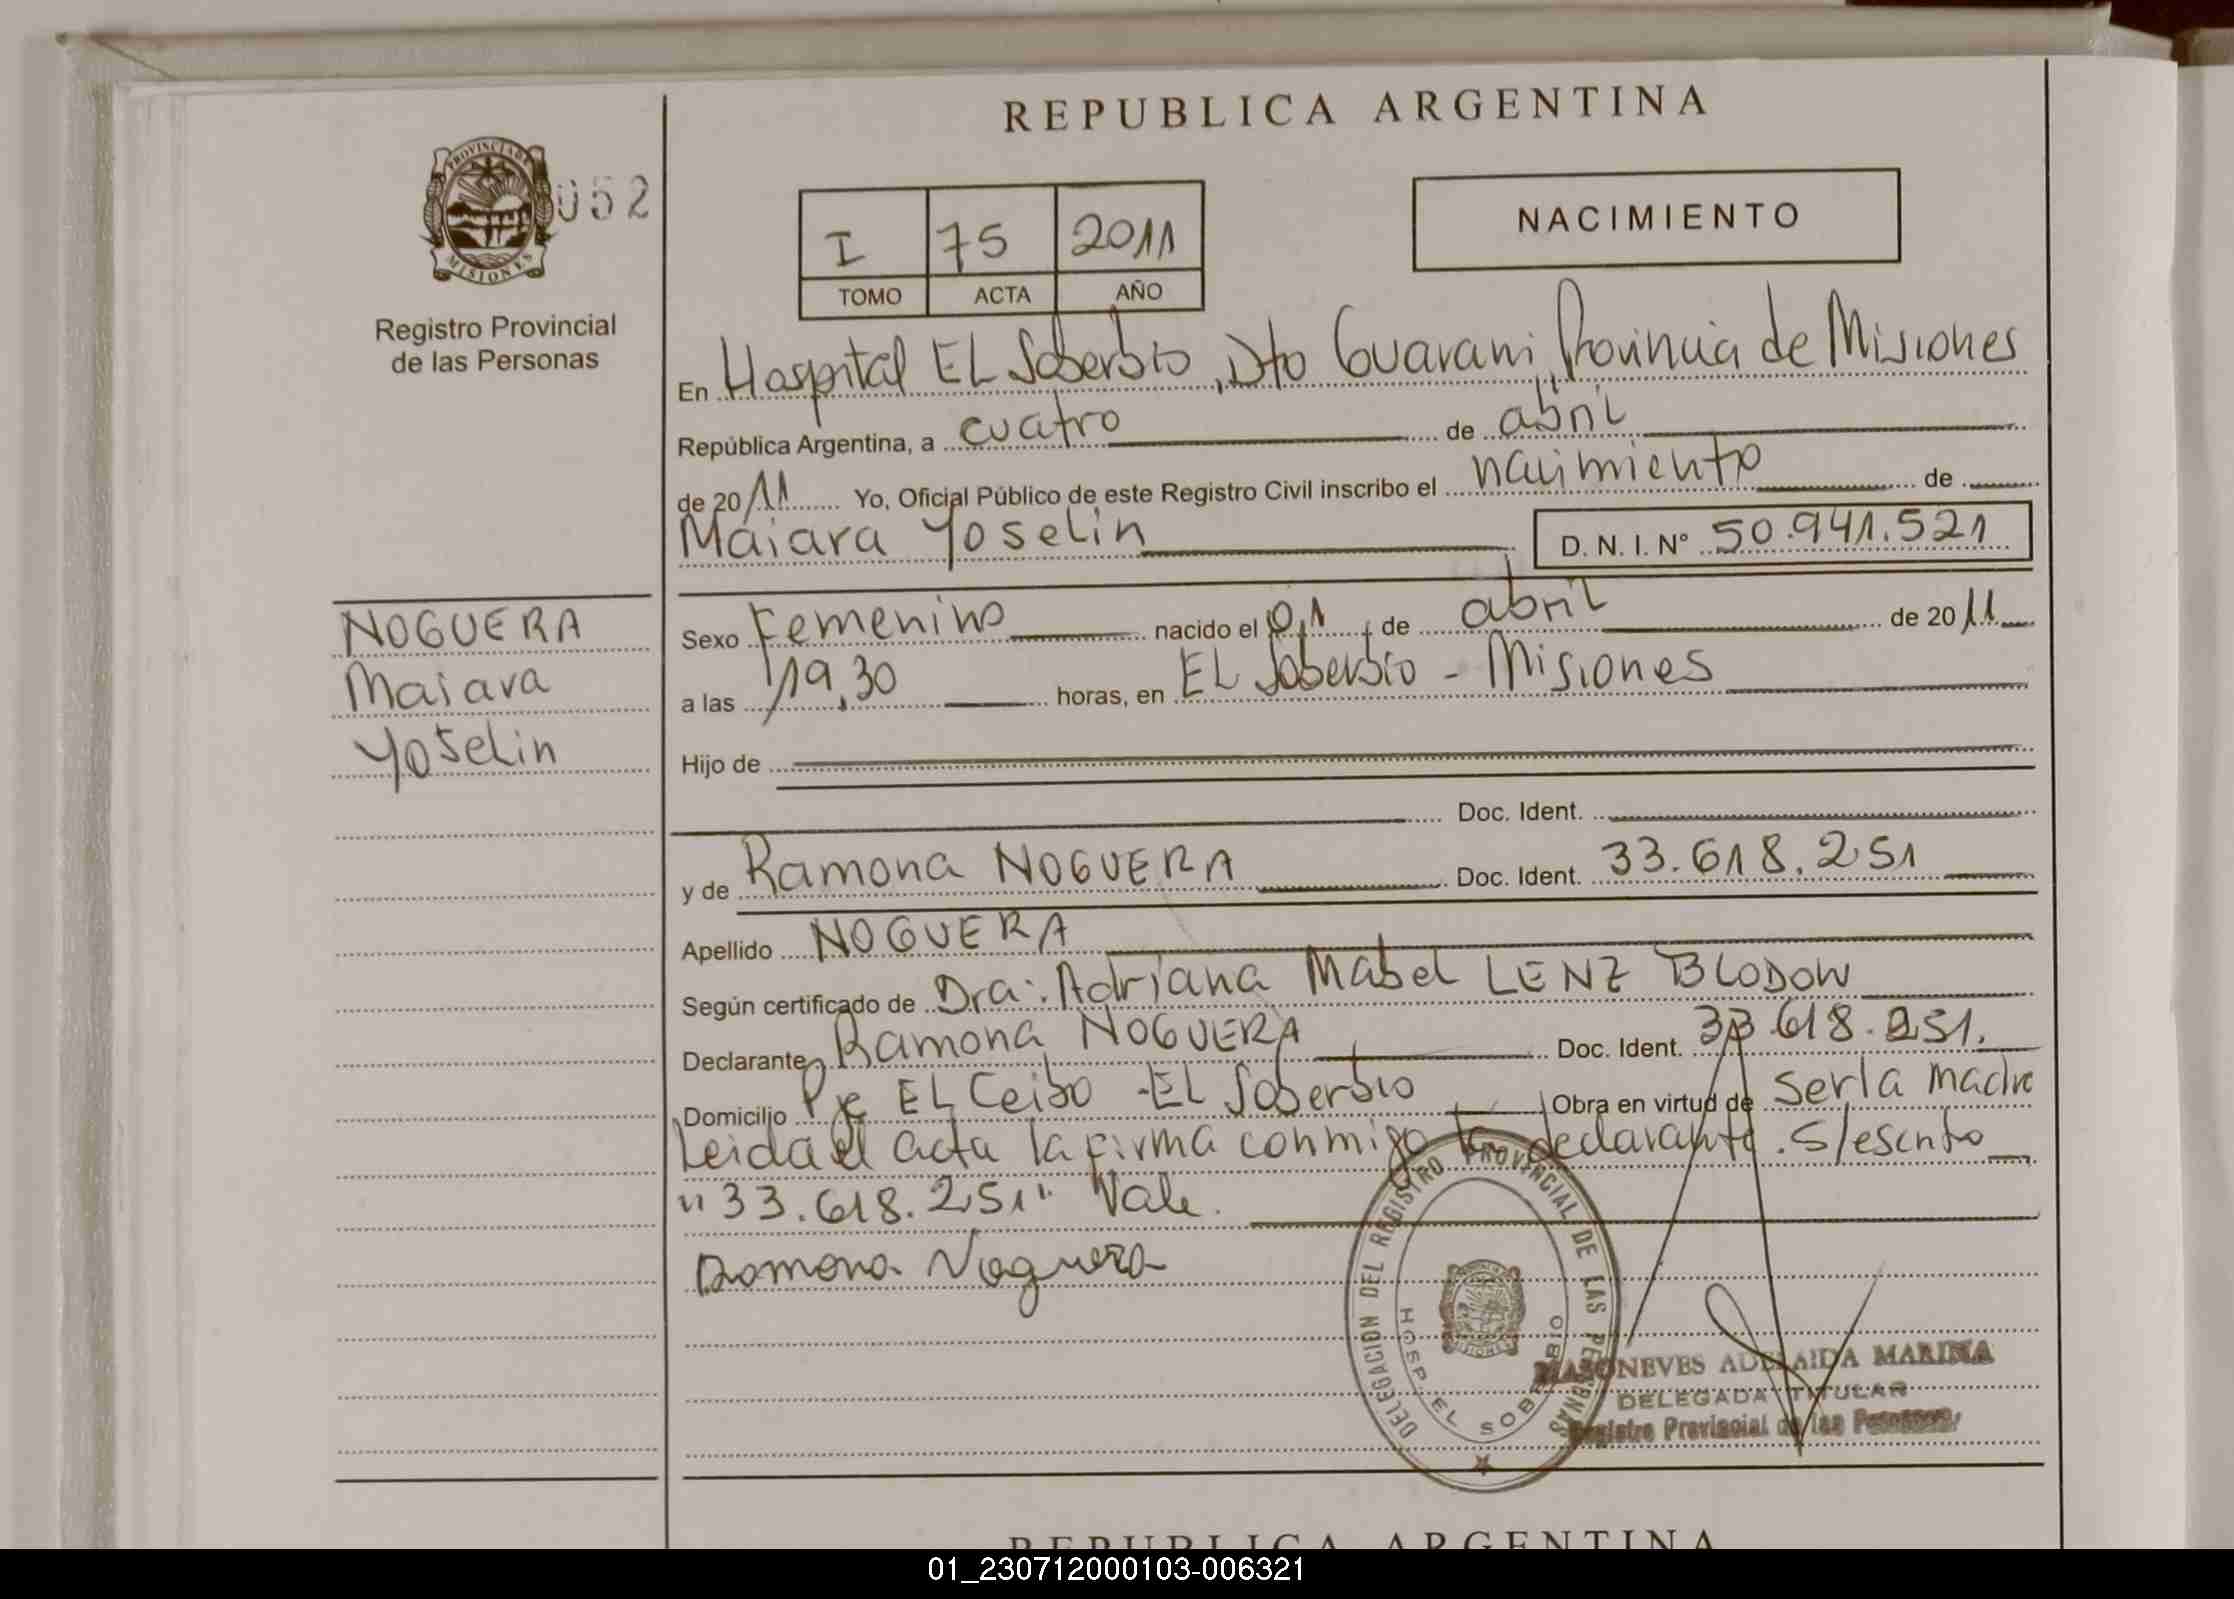 REPUBLICA ARGENTINA
PROVINCIA DE
MISIONES
052
Registro Provincial
de las Personas
I 75 2011
TOMO ACTA AÑO
NACIMIENTO
En Hospital EL Soberbio, Dto Guarani, Provincia de Misiones
República Argentina, a cuatro de abril
de 2011 Yo, Oficial Público de este Registro Civil inscribo el nacimiento de
Maiara Yoselin D. N. I. N° 50.941.521
NOGUERA
Maiara
Yoselin
Sexo Femenino nacido el 01 de abril de 2011
a las 19,30 horas, en EL Soberbio - Misiones
Hijo de
Doc. Ident.
y de Ramona NOGUERA Doc. Ident. 33.618.251
Apellido NOGUERA
Según certificado de Dra. Adriana Mabel LENZ BLODOW
Declarante Ramona NOGUERA Doc. Ident. 33.618.251.
Domicilio Pje EL Ceibo - EL Soberbio Obra en virtud de ser la madre
Leida el acta la firma conmigo la declarante. S/escrito
"33.618.251" Vale.
Ramona Noguera
DELEGACION DEL REGISTRO PROVINCIAL DE LAS PERSONAS
HOSP. EL SOBERBIO
ADELAIDA MARINA
DELEGADA TITULAR
Registro Provincial de las Personas
REPUBLICA ARGENTINA
01_230712000103-006321